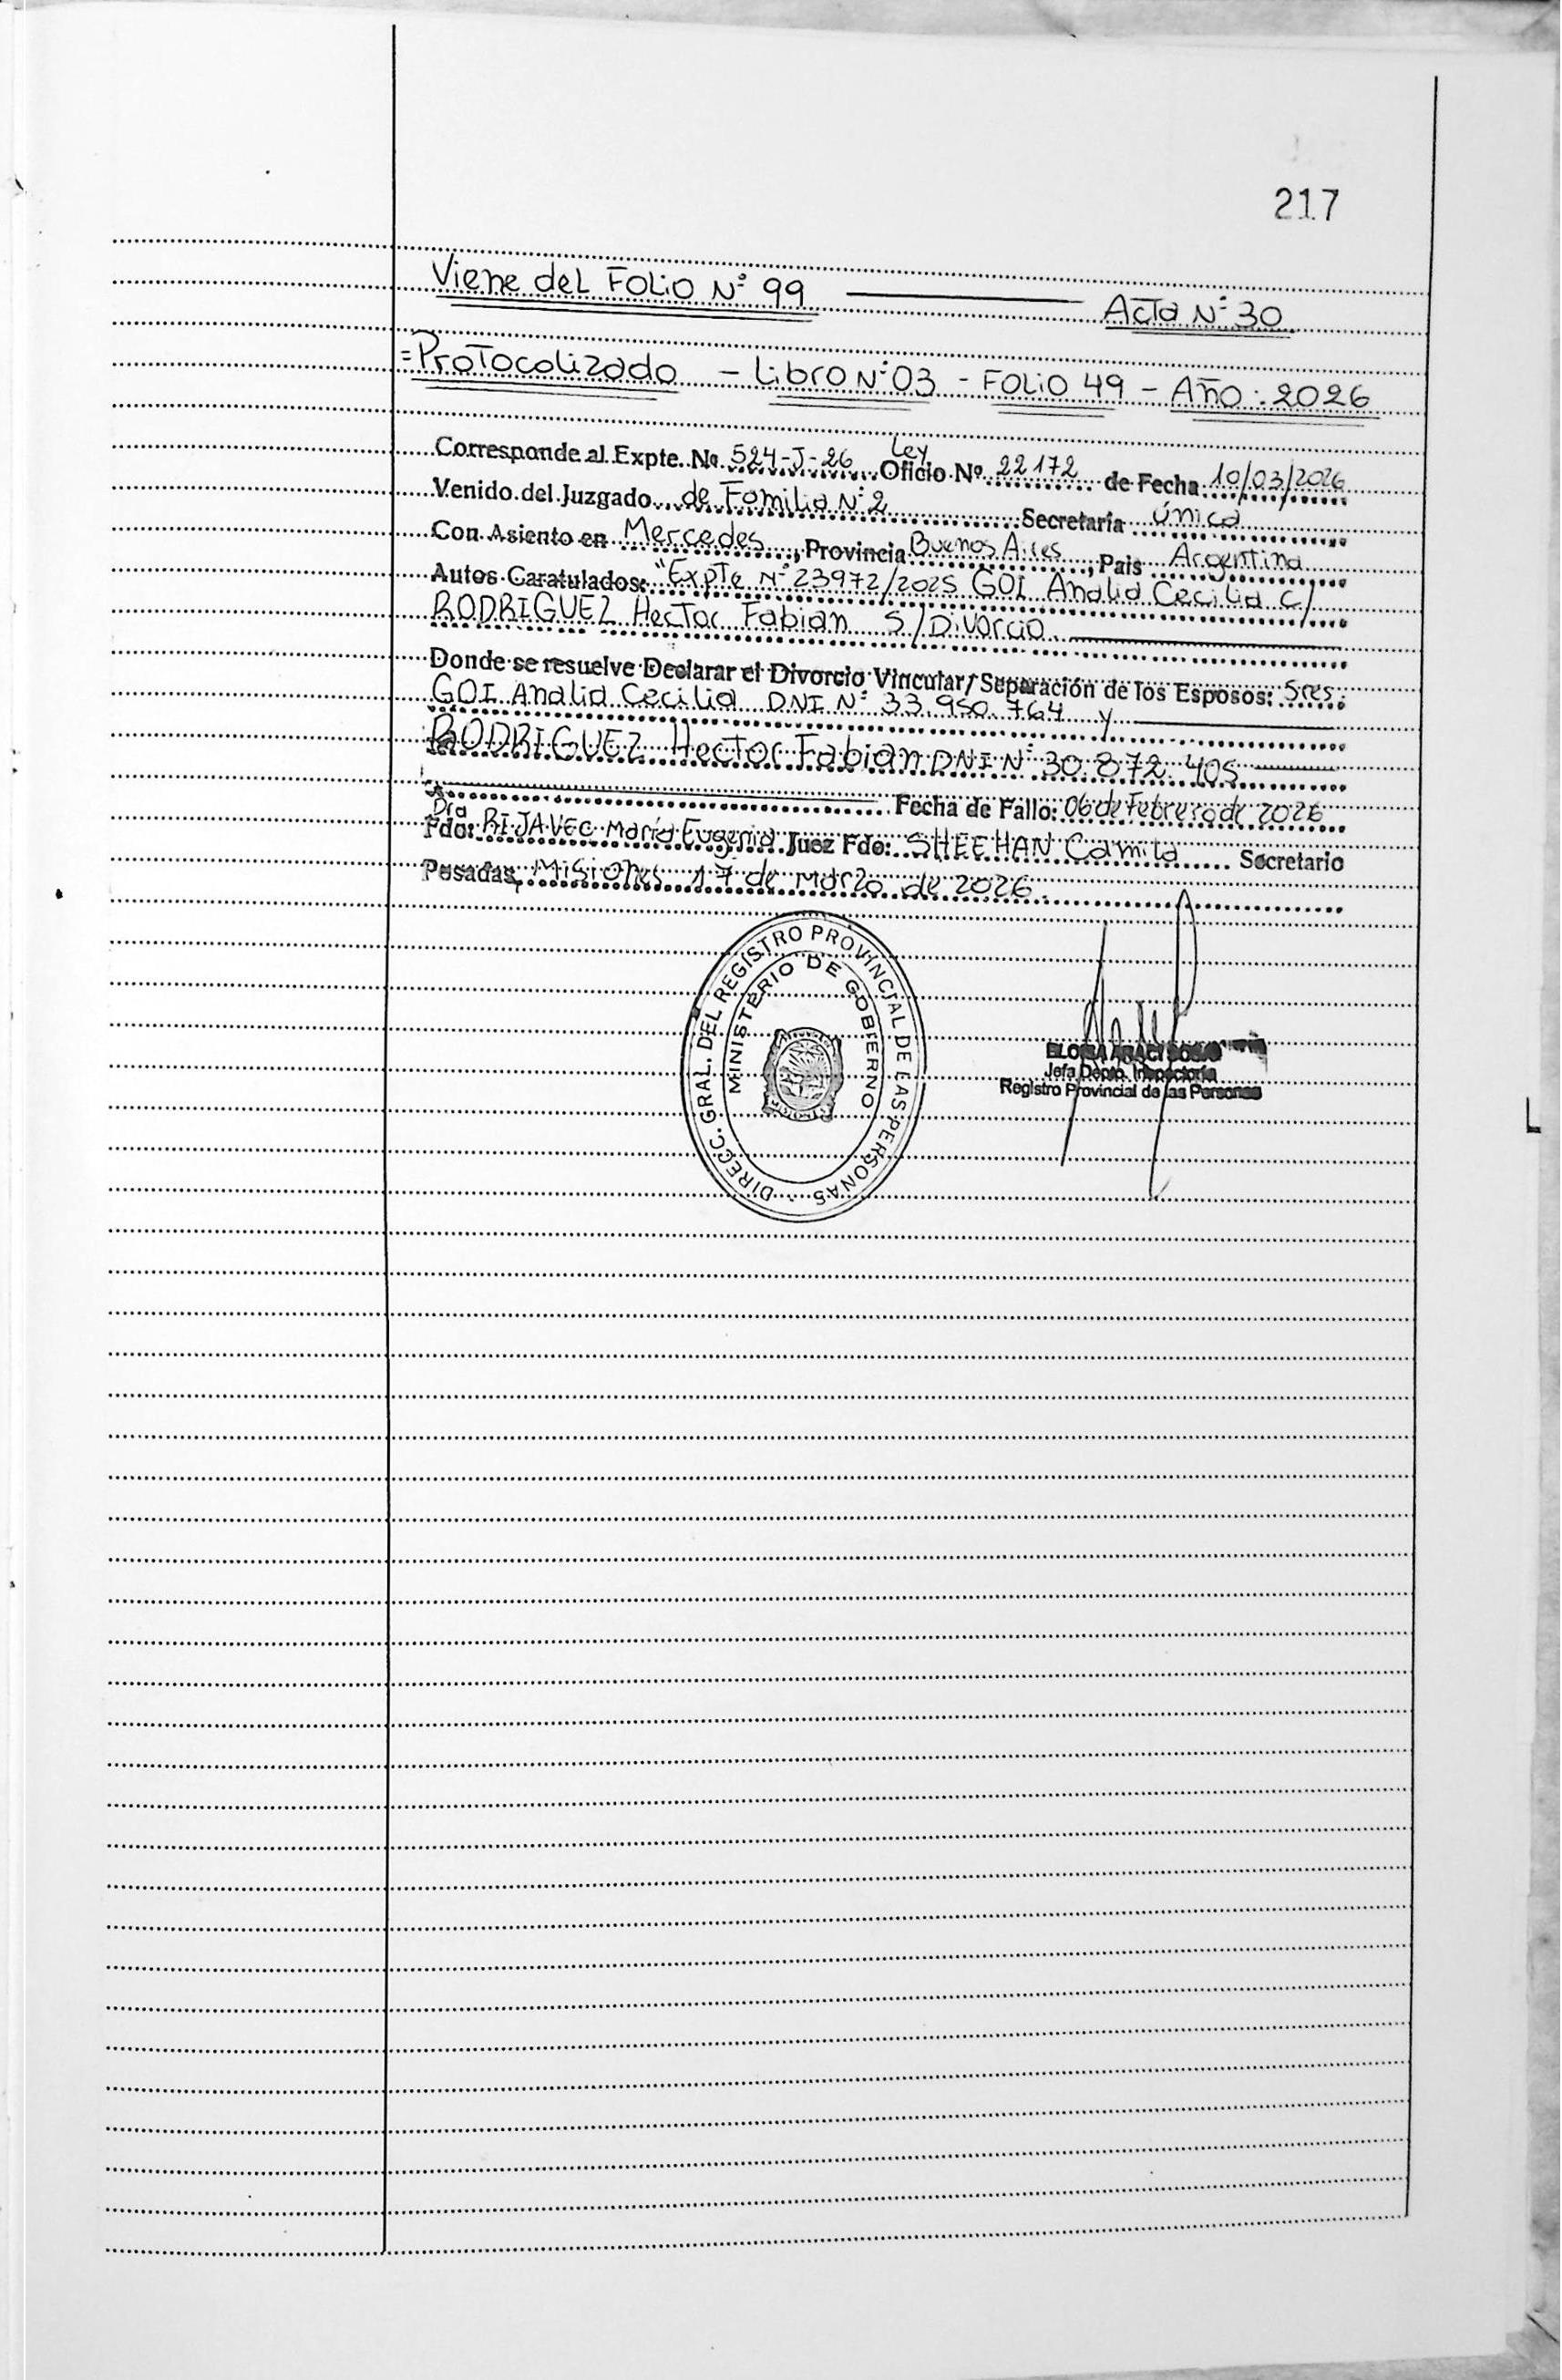 217
Viene del Folio N° 99 Acta N° 30
=Protocolizado - Libro N° 03 - Folio 49 - Año: 2026
Corresponde al Expte. Nº 524-J-26 Ley Oficio Nº 22172 de Fecha 10/03/2026
Venido del Juzgado de Familia N° 2 Secretaría Única
Con Asiento en Mercedes, Provincia Buenos Aires, Pais Argentina
Autos Caratulados: "Expte N° 23972/2025 GOI Analia Cecilia c/
RODRIGUEZ Hector Fabian S/Divorcio
Donde se resuelve Declarar el Divorcio Vincular/ Separación de los Esposos: Sres:
GOI Analia Cecilia DNI N° 33.950.764 y
RODRIGUEZ Hector Fabian DNI N° 30.872.405
Fecha de Fallo: 06 de Febrero de 2026
Fdo: Dra RIJAVEC María Eugenia Juez Fdo: SHEEHAN Camila Secretario
Posadas, Misiones 17 de Marzo de 2026.
DIRECC. GRAL. DEL REGISTRO PROVINCIAL DE LAS PERSONAS
MINISTERIO DE GOBIERNO
ELOISA ARACI SOSA
Jefa Depto. Inspectoria
Registro Provincial de las Personas